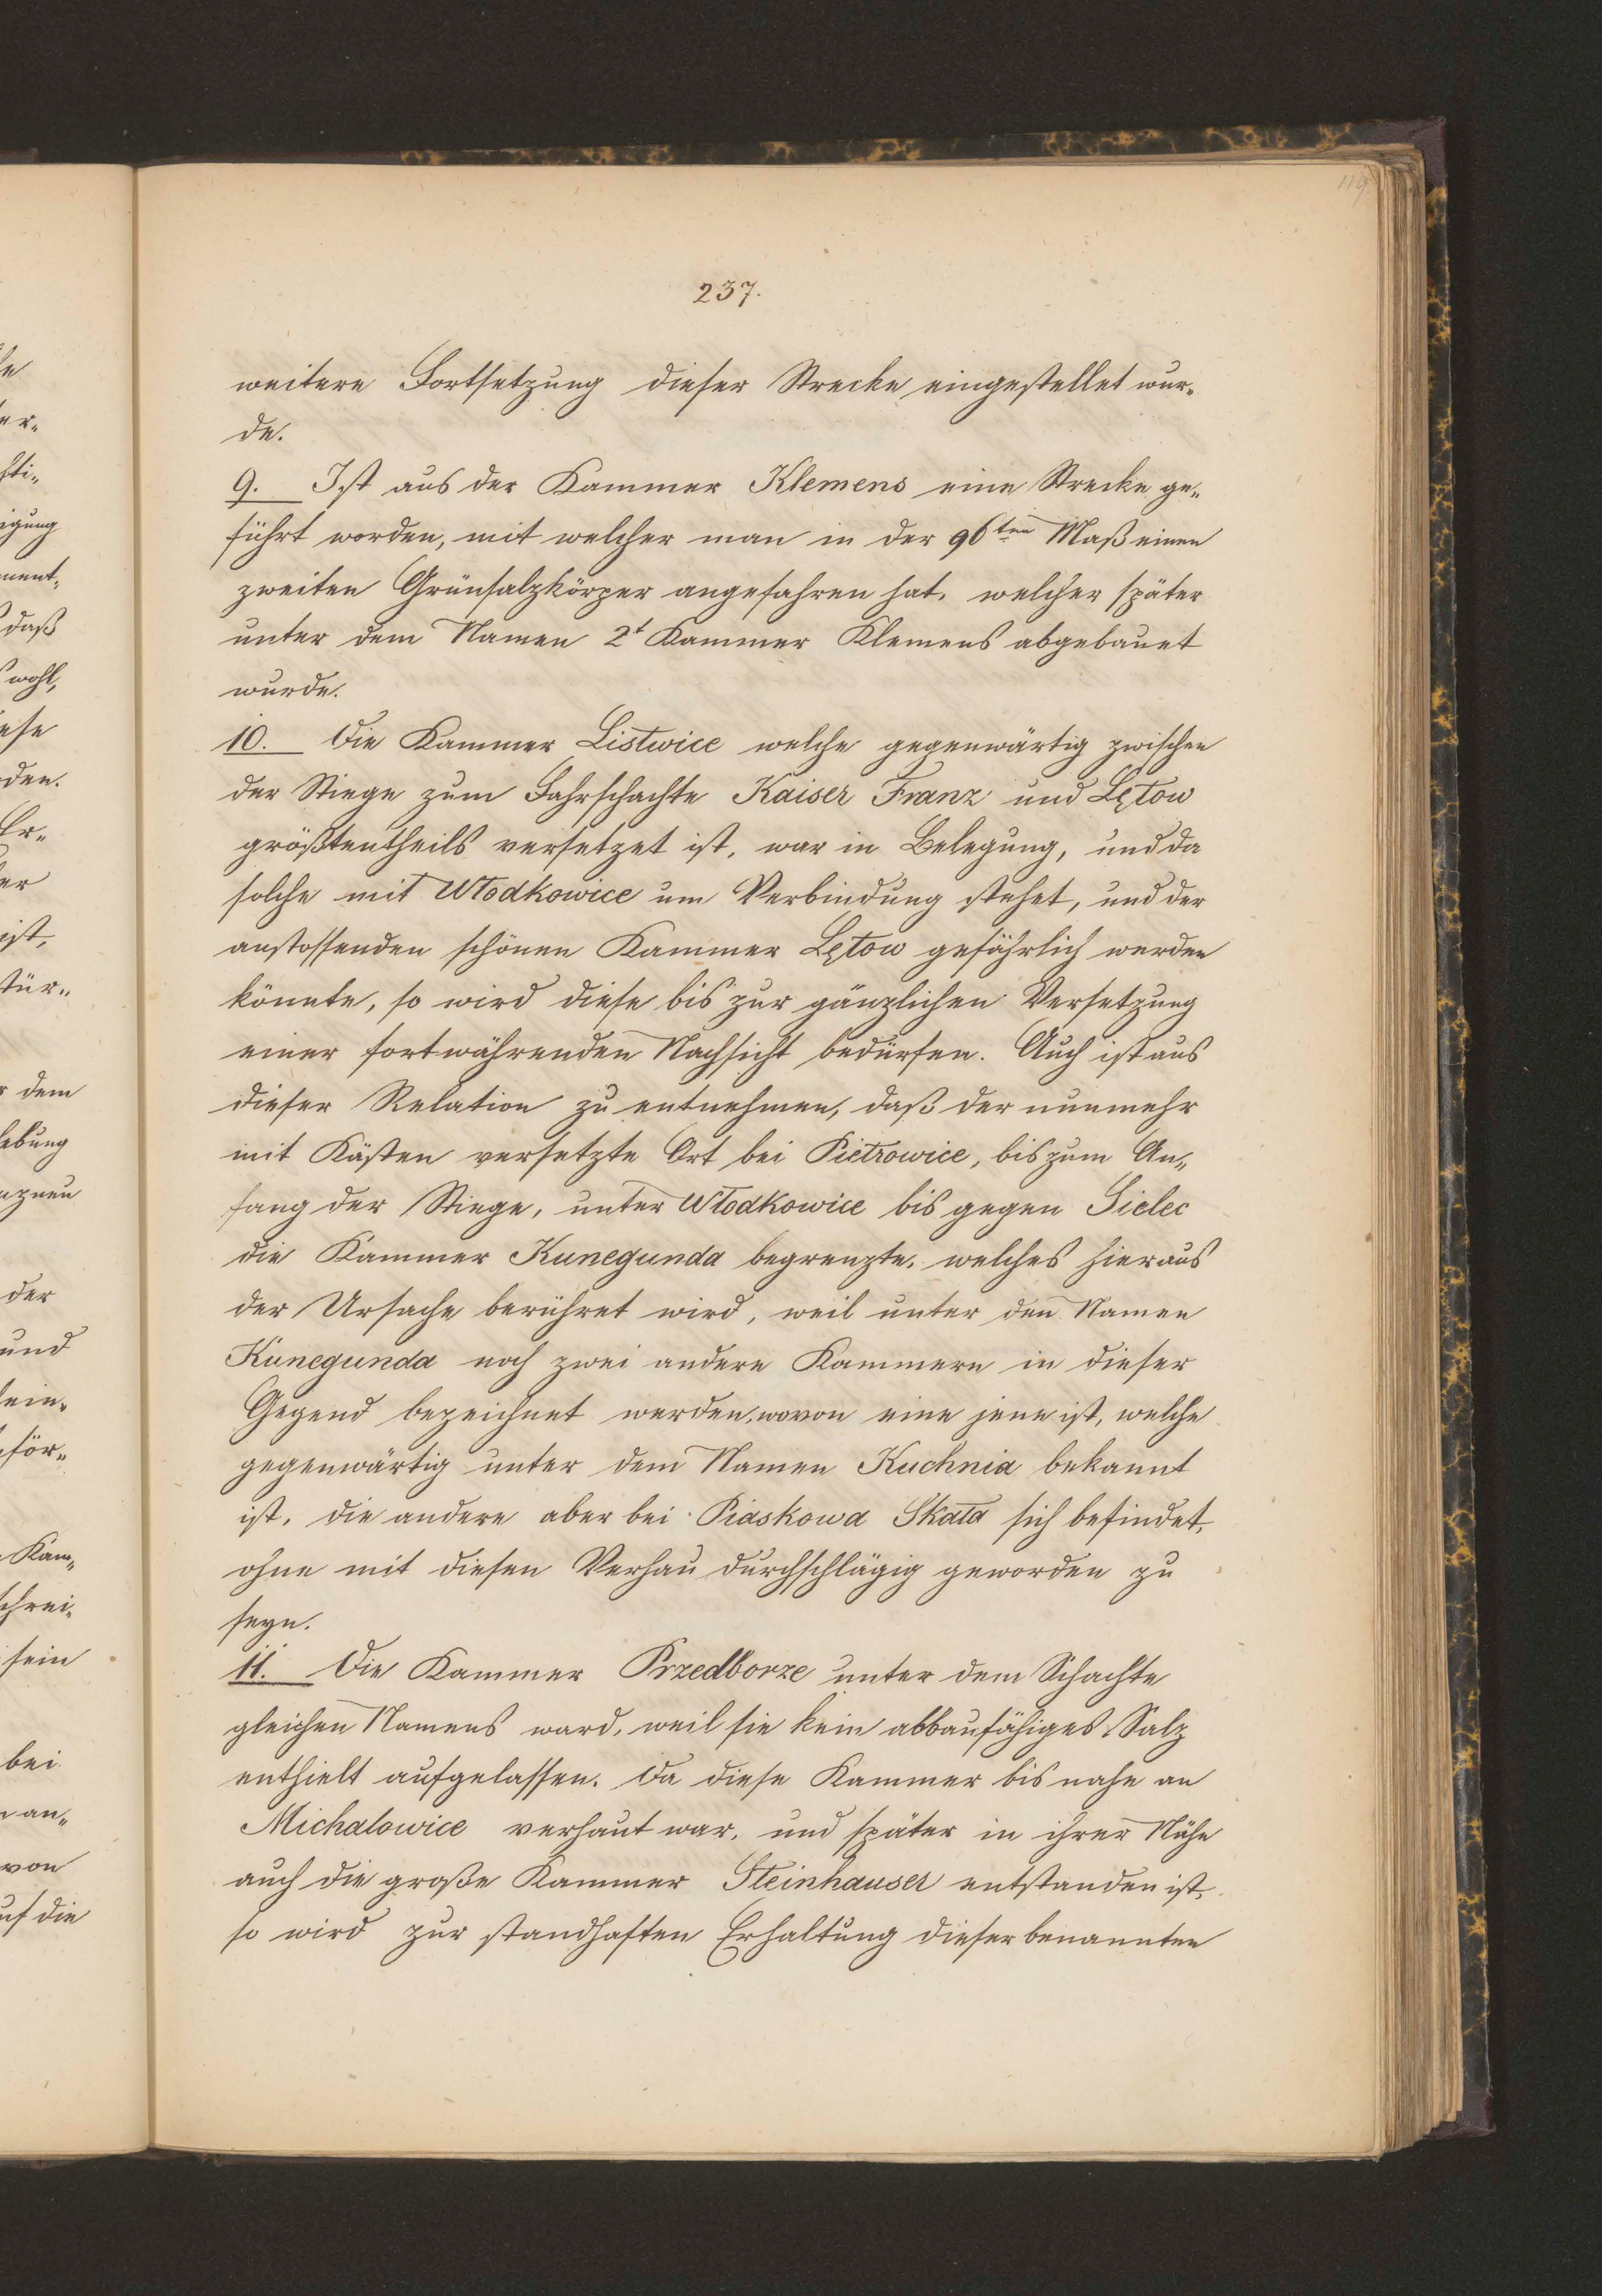 119
237.
weitere Fortsetzung dieser Strecke eingestellet wur„
de.
9. Ist aus der Kammer Klemens eine Strecke ge„
führt worden, mit welcher man in der 96ten Maß einen
zweiten Grünsalzkörper angefahren hat, welcher später
unter dem Namen 2t Kammer Klemens abgebauet
wurde.
10. Die Kammer Listwice welche gegenwärtig zwischen
der Stiege zum Fahrschachte Kaiser Franz und Lętow
größtentheils versetzet ist, war in Belegung, und da
solche mit Włodkowice um Verbindung stehet, und der
anstossenden schönen Kammer Lętow gefährlich werden
könnte, so wird diese bis zur gänzlichen Versetzung
einer fortwährenden Nachsicht bedürfen. Auch ist aus
dieser Relation zu entnehmen, daß der nunmehr
mit Kästen versetzte Ort bei Pietrowice, bis zum An„
fang der Stiege, unter Włodkowice bis gegen Sielec
die Kammer Kunegunda begrenzte, welches hier aus
der Ursache berühret wird, weil unter den Namen
Kunegunda noch zwei andere Kammern in dieser
Gegend bezeichnet werden, wovon eine jene ist, welche
gegenwärtig unter dem Namen Kuchnia bekannt
ist, die andere aber bei Piaskowa Skała sich befindet,
ohne mit diesen Verhau durchschlägig geworden zu
seyn.
11. Die Kammer Przedborze unter dem Schachte
gleichen Namens ward, weil sie kein abbaufähiges Salz
enthielt aufgelassen. Da diese Kammer bis nahe an
Michalowice verhaut war, und später in ihrer Nähe
auch die große Kammer Steinhauser entstanden ist,
so wird zur standhaften Erhaltung dieser benannten